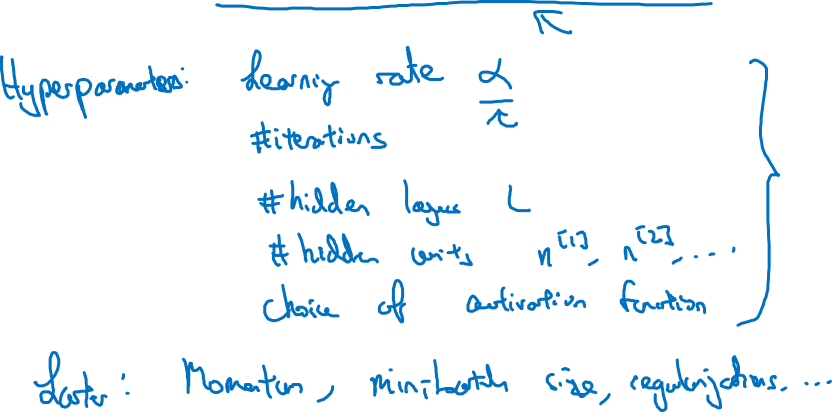 Hyperparameters: Learning rate α
#iterations
#hidden layers L
# hidden units n^[1], n^[2], ...
choice of activation function
Later: Momentum, mini-batch size, regularizations, ...